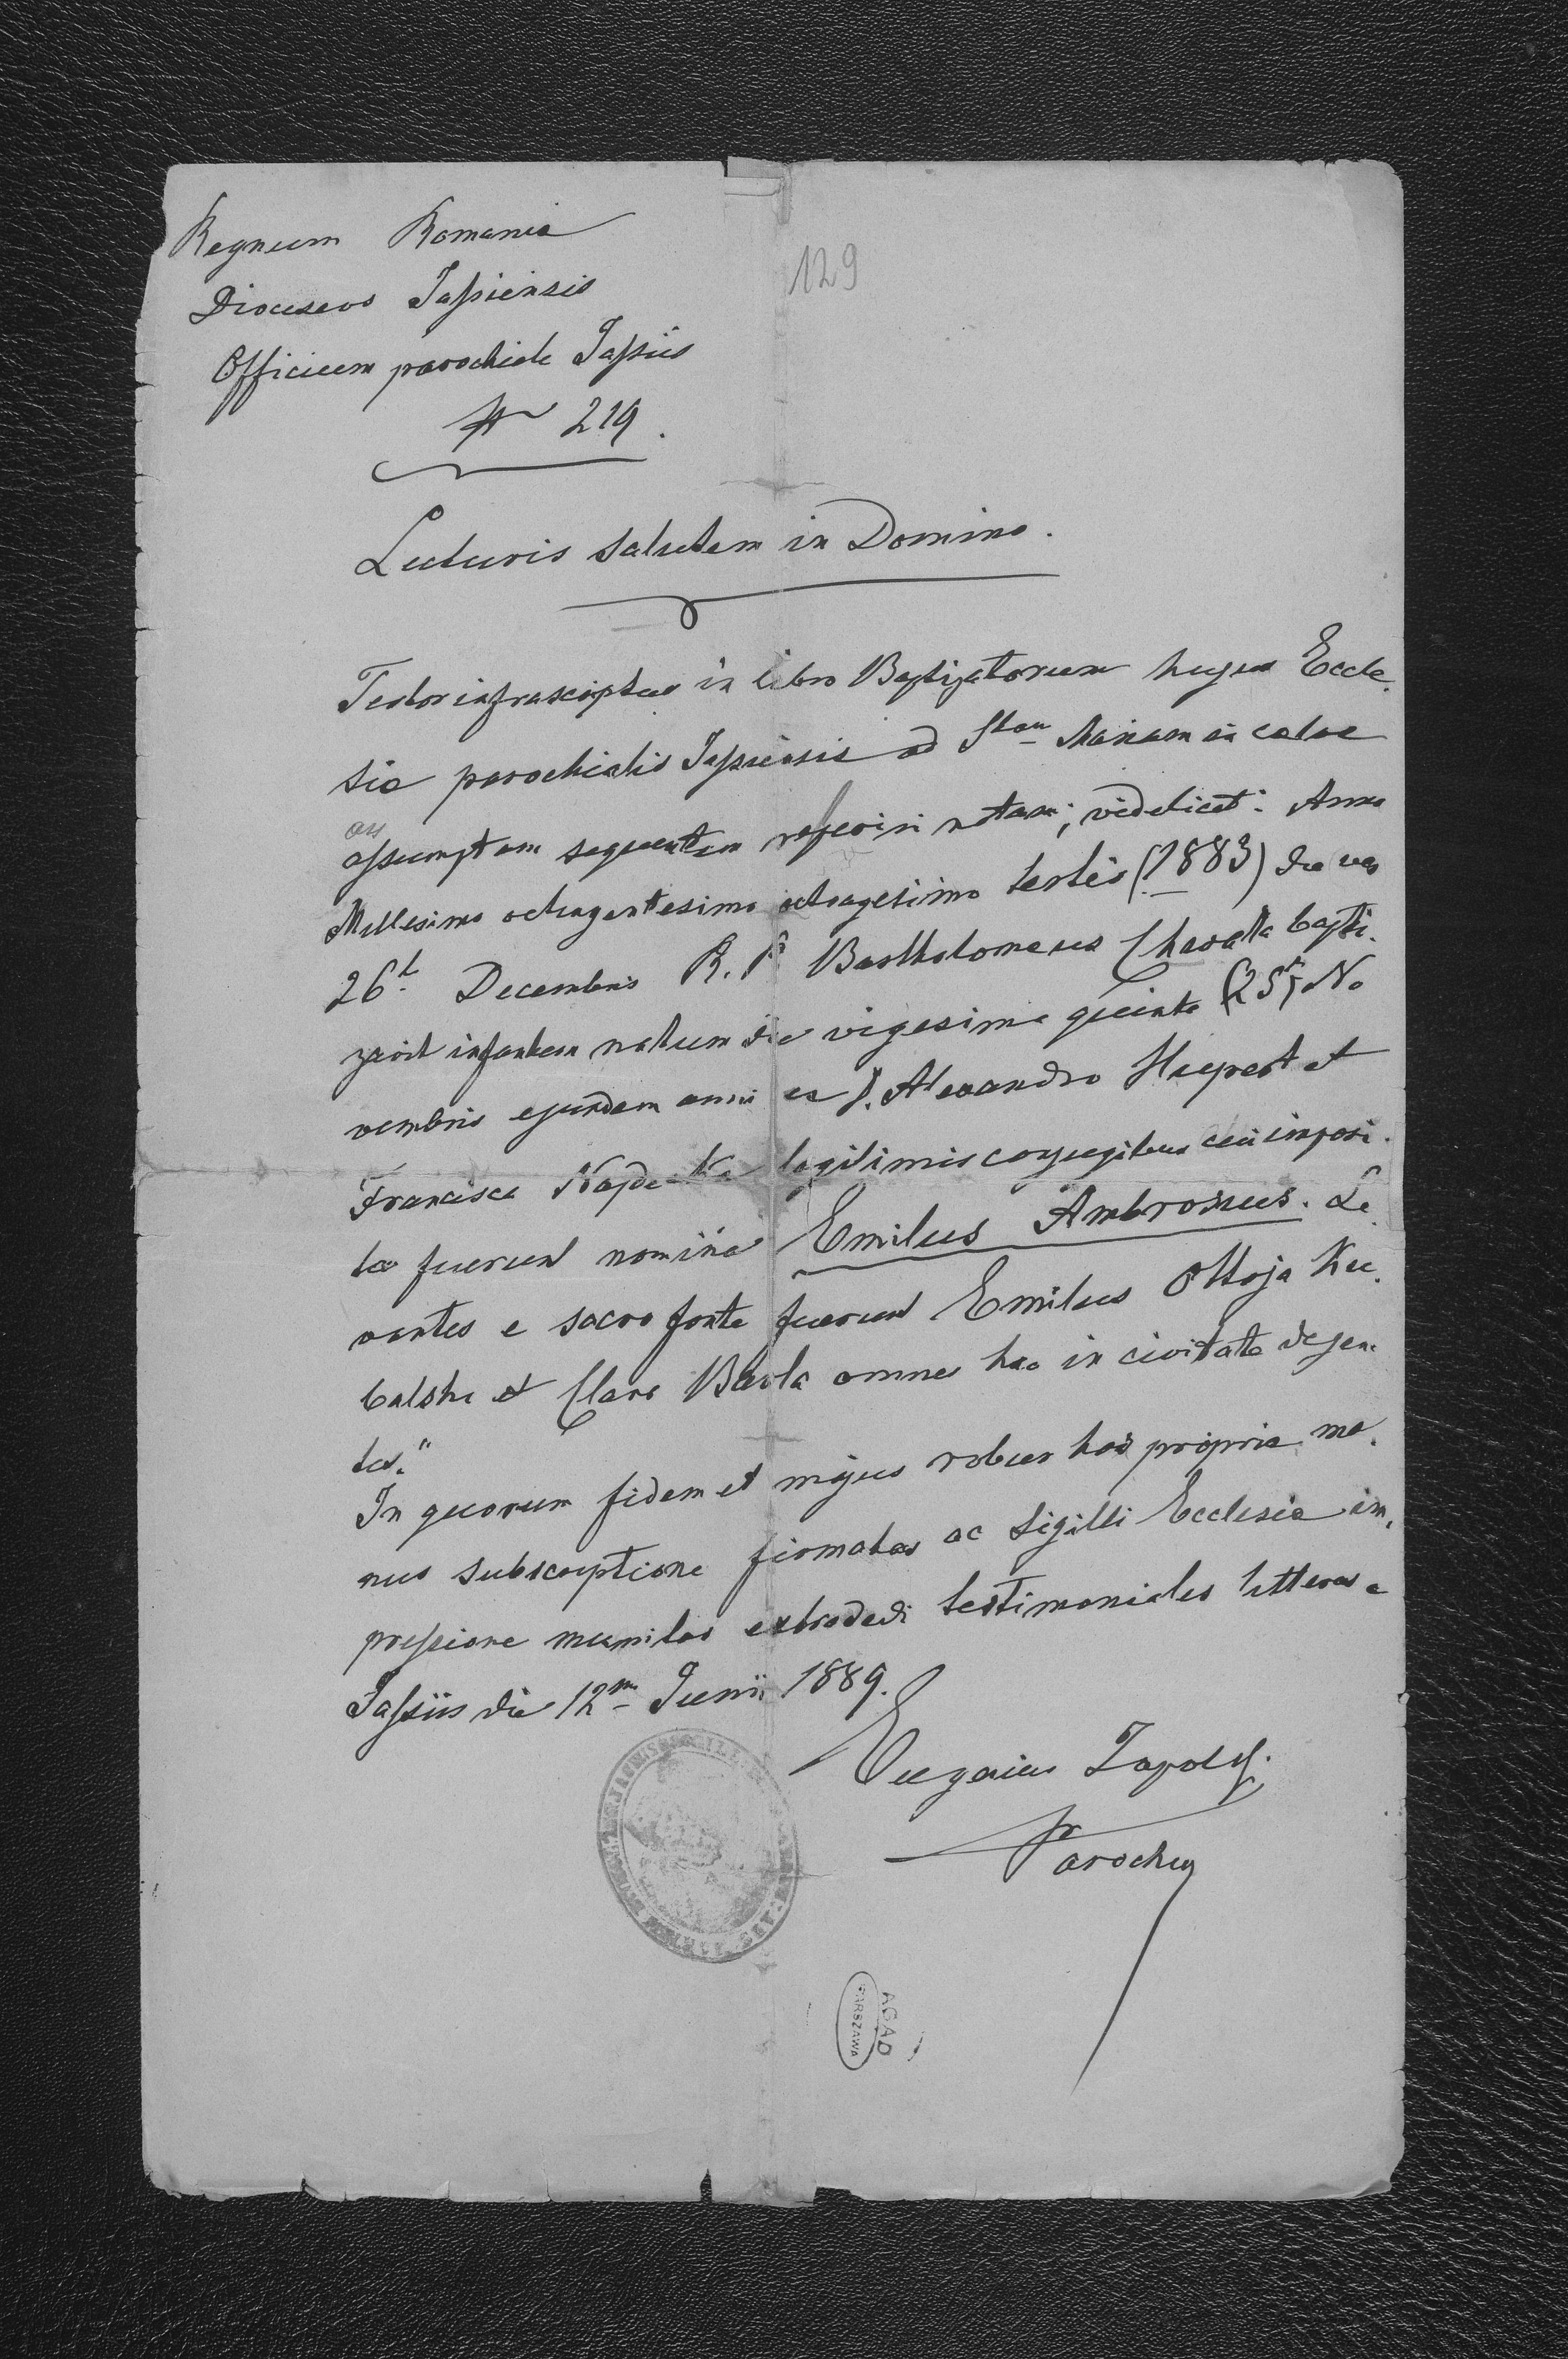 Regnum Romania
Dioceseos Jassiensis
Officium parochiale Jassiis
N 219.
129
Lecturis salutem in Domino.
Testor infrascriptus in libro Baptizatorum hujus Eccle-
sie parochialis Jassiensis ad Stam Mariam in coelos
assumptam sequentem reperiri notam; videlicet: Anno
Millesimo octingentesimo octoagesimo tertio (1883) die vero
26t Decembris R. P. Bartholomaeus baptis-
zavit infantem natum die vigesima quinta (25) No
vembris ejusdem anni ex D. Alexandro Huepert et
Francisca legitimis conjugibus cui imposi-
ta fuerunt nomina Emilus Ambrosius. Le-
vantes e sacro fonte fuerunt Emilus Ottoja Ku-
balski et Clara Barla omnes hac in civitate degen-
tes."
In quorum fidem et majus robur has propria ma-
nus subscriptione firmatas ac Sigilli Ecclesie im-
pressione munitas extradedi testimoniales litteras
Jassiis die 12m Junii 1889.
Eugenius Zapolsk.
Parochus
AGAD
WARSZAWA